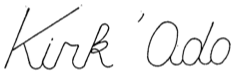 Kirk 'Ado